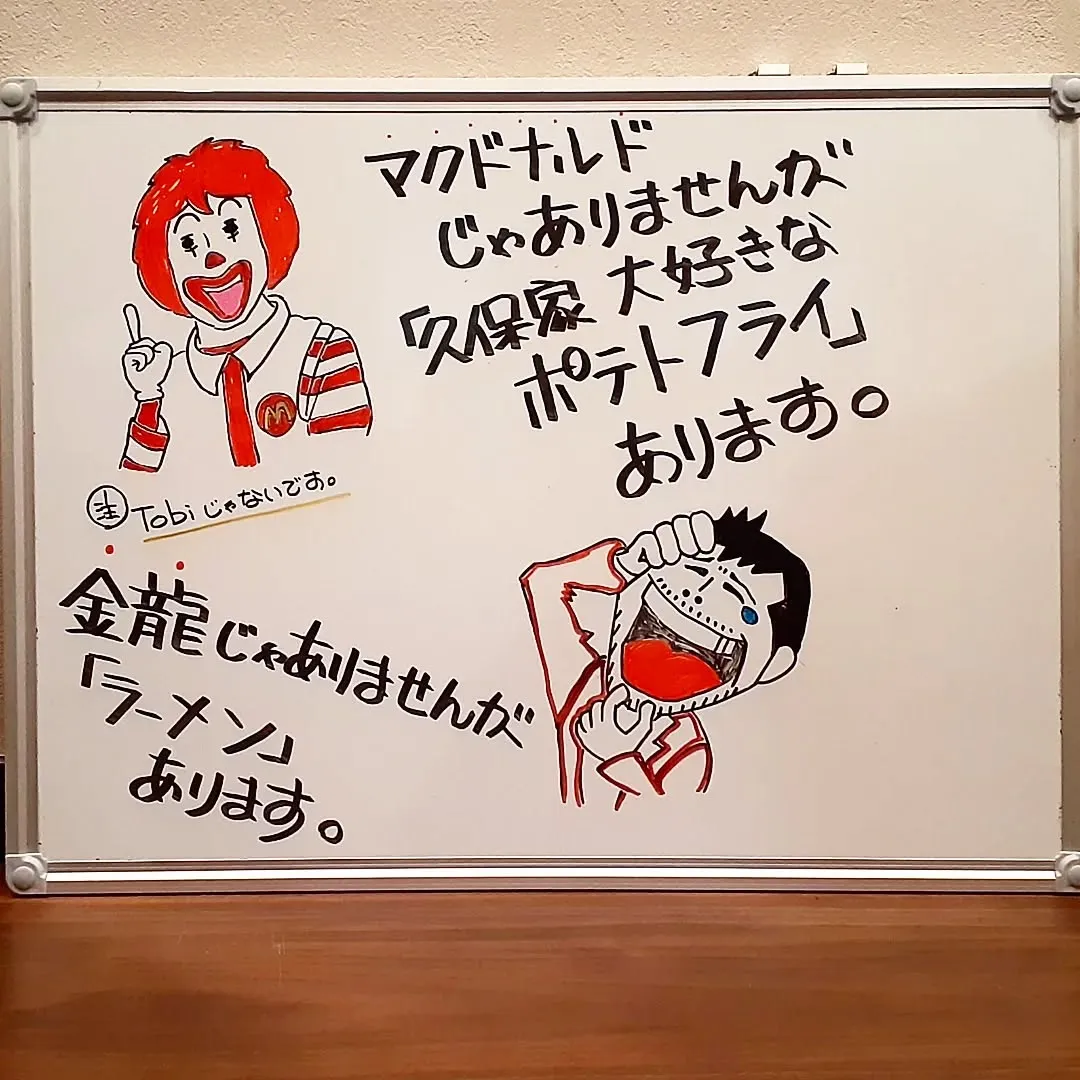 マクドナルド
じゃありませんが
「久保家 大好きな
ポテトフライ」
あります。
注 Tobiじゃないです。
金龍じゃありませんが
「ラーメン」
あります。